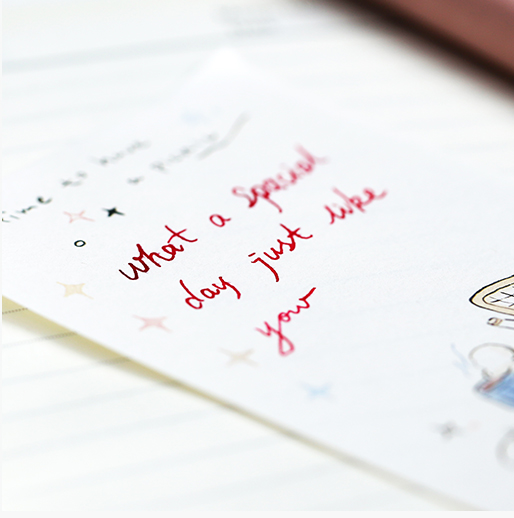 time to have
a picnic
what a special
day just like
you